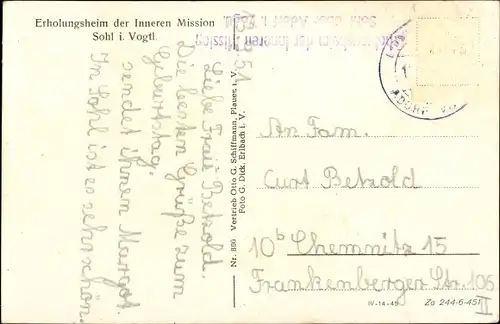 Erholungsheim der Inneren Mission
Sohl i. Vogtl.
Erholungsheim der Inneren Mission
Sohl über Adorf i. Vogtl.
ADORF
Liebe Frau Betzold.
Die besten Grüße zum
Geburtstag.
sendet ihnen Margot.
In Sohl ist es sehr schön.
Nr. 800 Vertrieb Otto G. Schiffmann, Plauen i. V.
Foto G. Dick, Erlbach i. V.
An Fam.
Curt Betzold
10b Chemnitz 15
Frankenberger Str. 106
II
IV-14-45 Za 244-6-451